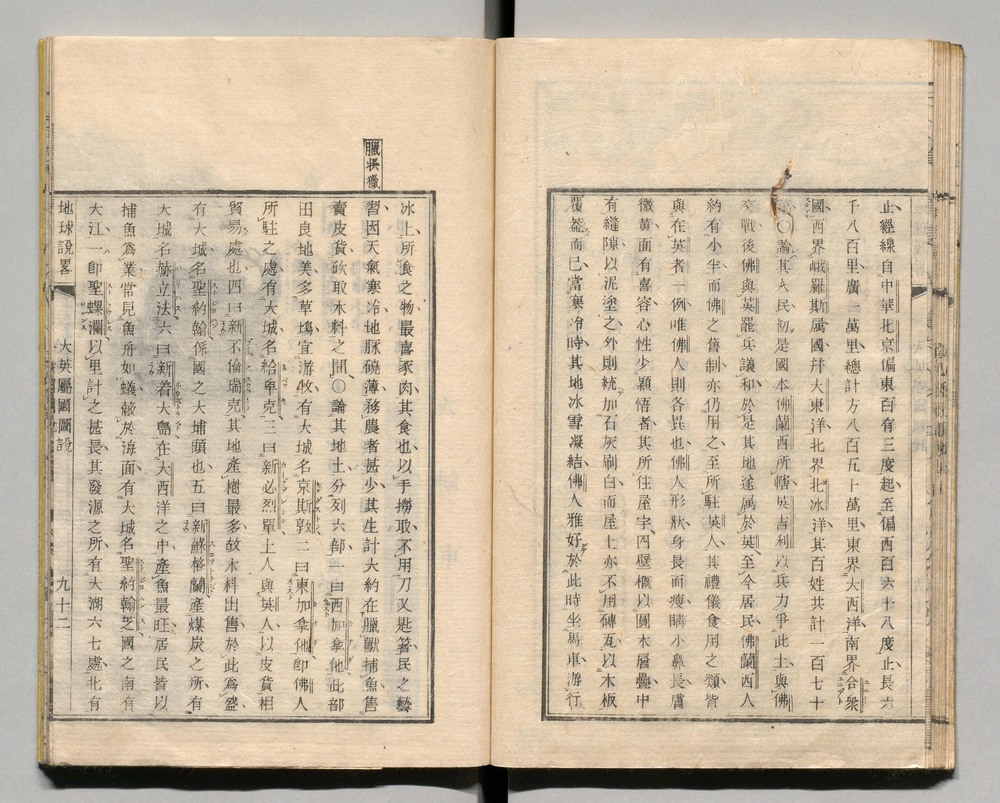 止經線自中華北京偏東百有三度起至偏西百六十八度止長六
千八百里廣一萬里總計方八百五十萬里東界大西洋南界合衆
國西界峨羅斯属國幷大東洋北界北冰洋其百姓共計一百七十
○論其人民初是國本佛蘭西所轄英吉利以兵力爭此土與佛
交戰後佛與英罷兵議和於是其地遂属於英至今居民佛蘭西人
約有小半而佛之舊制亦仍用之至所駐英人其禮儀食用之類皆
與在英者一例唯佛人則各異也佛人形狀身長而瘦睛小鼻長膚
微黃面有喜容心性少穎悟者其所住屋宇四壁槪以圓木層疊中
有縫隙以泥塗之外則統加石灰刷白而屋上亦不用磚瓦以木板
覆葢而已當寒冷時其地冰雪凝結佛人雅好於此時坐馬車游行
臘
獵
冰上所食之物最喜豕肉其食也以手撈取不用刀叉匙箸民之藝
習因天氣寒冷地脉磽薄務農者甚少其生計大約在臘獸捕魚售
賣皮貨砍取木料之間○論其地土分列六部一曰西加拿他此部
田良地美多草塲宜游牧有大城名京斯敦二曰東加拿他卽佛人
所駐之處有大城名給卑克三曰新必烈單土人與英人以皮貨相
貿易處也四曰新不倫瑞克其地產樹最多故木料出售於此爲盛
有大城名聖約翰係國之大埔頭也五曰新蘇格蘭產煤炭之所有
大城名赫立法六曰新着大島在大西洋之中產魚最旺居民皆以
捕魚爲業常見魚舟如蟻聚於海面有大城名聖約翰芝國之南有
大江一卽聖螺瀾以里計之甚長其發源之所有大湖六七處北有
地球說畧
大英屬國圖說
九十二